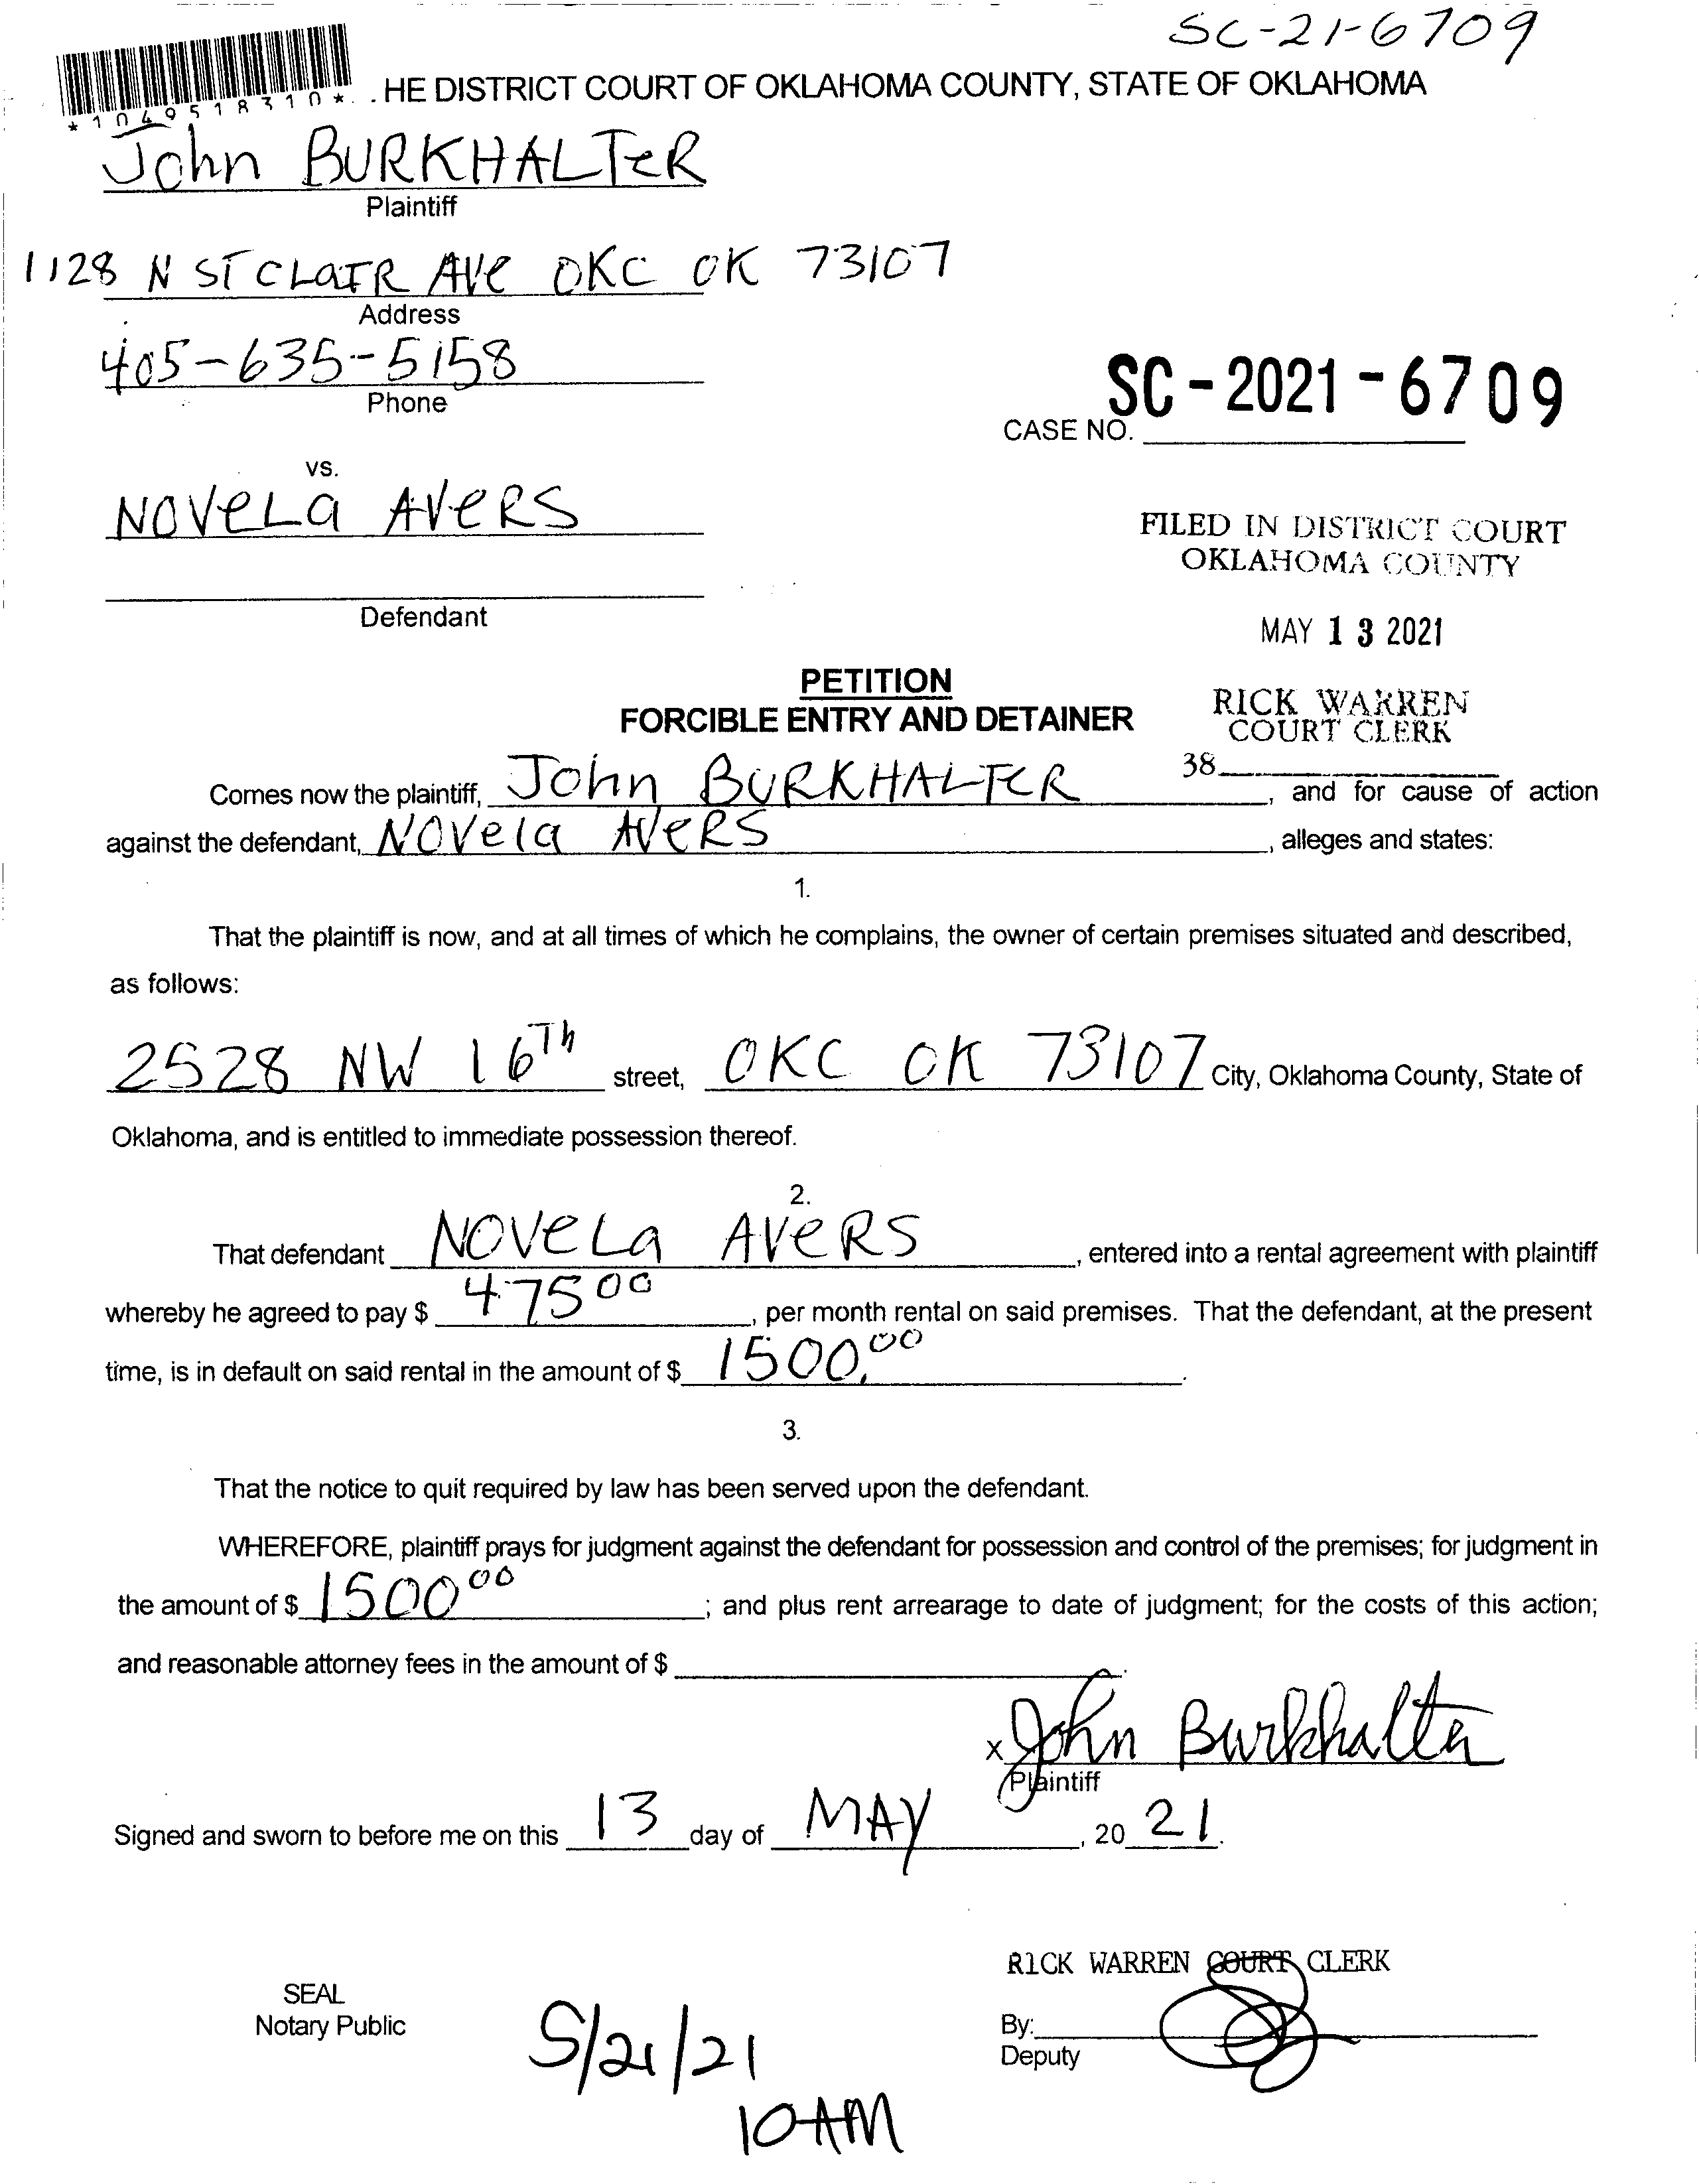 SC-21-6709
*1049518310*
HE DISTRICT COURT OF OKLAHOMA COUNTY, STATE OF OKLAHOMA
John BURKHALTeR
Plaintiff
1128 N ST CLaIR AVe OKC OK 73107
Address
405-635-5158
Phone
SC-2021-6709
CASE NO.
vs.
NOVeLa AVeRS
FILED IN DISTRICT COURT
OKLAHOMA COUNTY
Defendant
MAY 13 2021
PETITION
FORCIBLE ENTRY AND DETAINER
RICK WARREN
COURT CLERK
38
Comes now the plaintiff, John BURKHALTeR, and for cause of action
against the defendant, NOVela AVeRS, alleges and states:
1.
That the plaintiff is now, and at all times of which he complains, the owner of certain premises situated and described,
as follows:
2528 NW 16Th street, OKC OK 73107 City, Oklahoma County, State of
Oklahoma, and is entitled to immediate possession thereof.
2.
That defendant NOVeLa AVeRS, entered into a rental agreement with plaintiff
whereby he agreed to pay $ 475 00, per month rental on said premises. That the defendant, at the present
time, is in default on said rental in the amount of $ 1500.00.
3.
That the notice to quit required by law has been served upon the defendant.
WHEREFORE, plaintiff prays for judgment against the defendant for possession and control of the premises; for judgment in
the amount of $ 1500 00; and plus rent arrearage to date of judgment; for the costs of this action;
and reasonable attorney fees in the amount of $.
x John Burkhalter
Plaintiff
Signed and sworn to before me on this 13 day of MAY, 20 21.
RICK WARREN COURT CLERK
SEAL
Notary Public
By:
Deputy
5/21/21
10AM